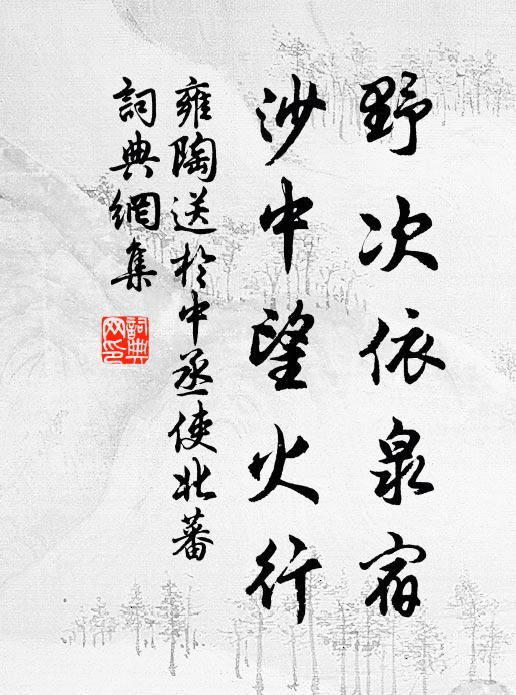 野次依泉宿
沙中望火行
雍陶送於中丞使北蕃
詞典網集
詞典網印